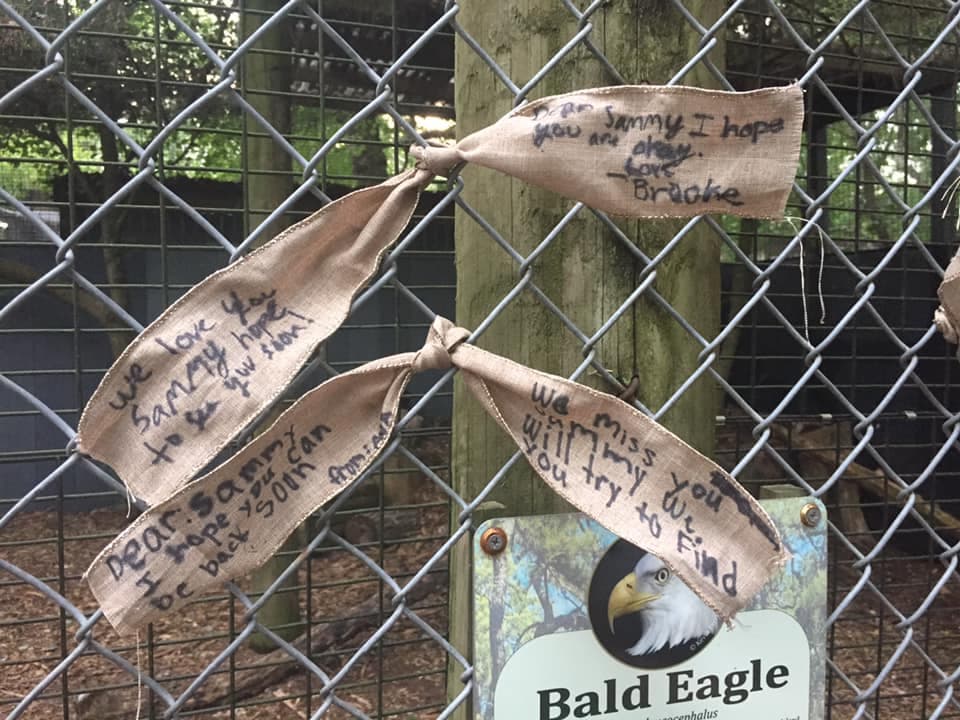 Dear Sammy I hope
you are okay.
Love
-Brooke
We love you
Sammy hope
to see you soon!
Dear: Sammy
I hope you can
be back soon
from:
We miss you
Sammy We
Will try to Find
you
Bald Eagle